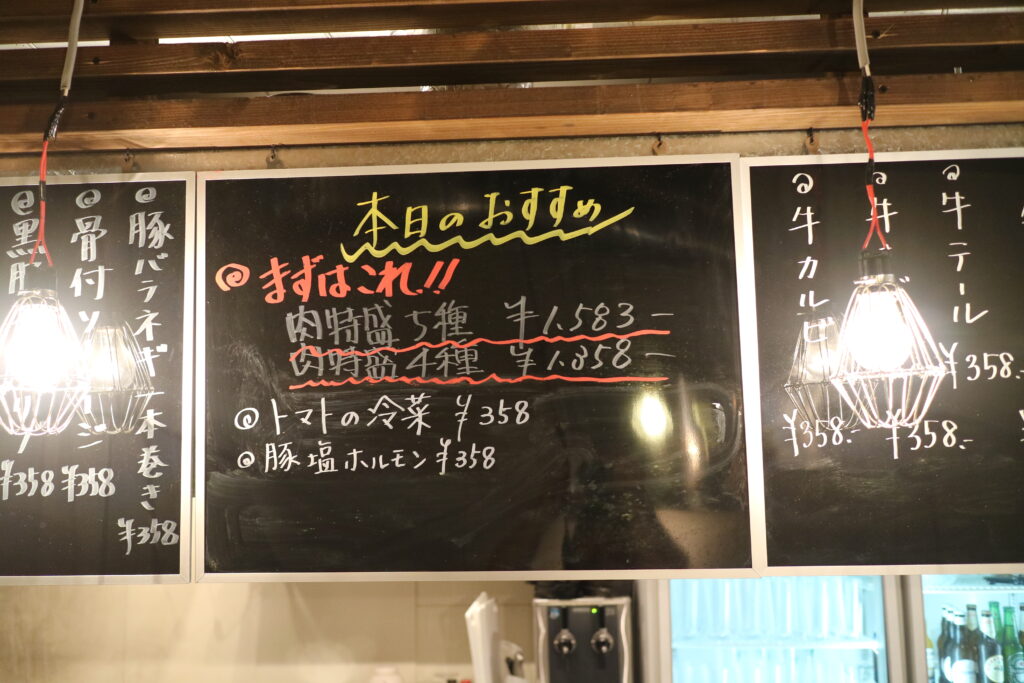 本日のおすすめ
まずはこれ!!
肉特盛5種 ¥1.583-
肉特盛4種 ¥1.358-
トマトの冷菜 ¥358
豚塩ホルモン ¥358
豚バラネギ一本巻き
¥358
骨付
¥358
黒豚
¥358
牛テール
¥358.-
牛
¥358.-
牛カルビ
¥358.-